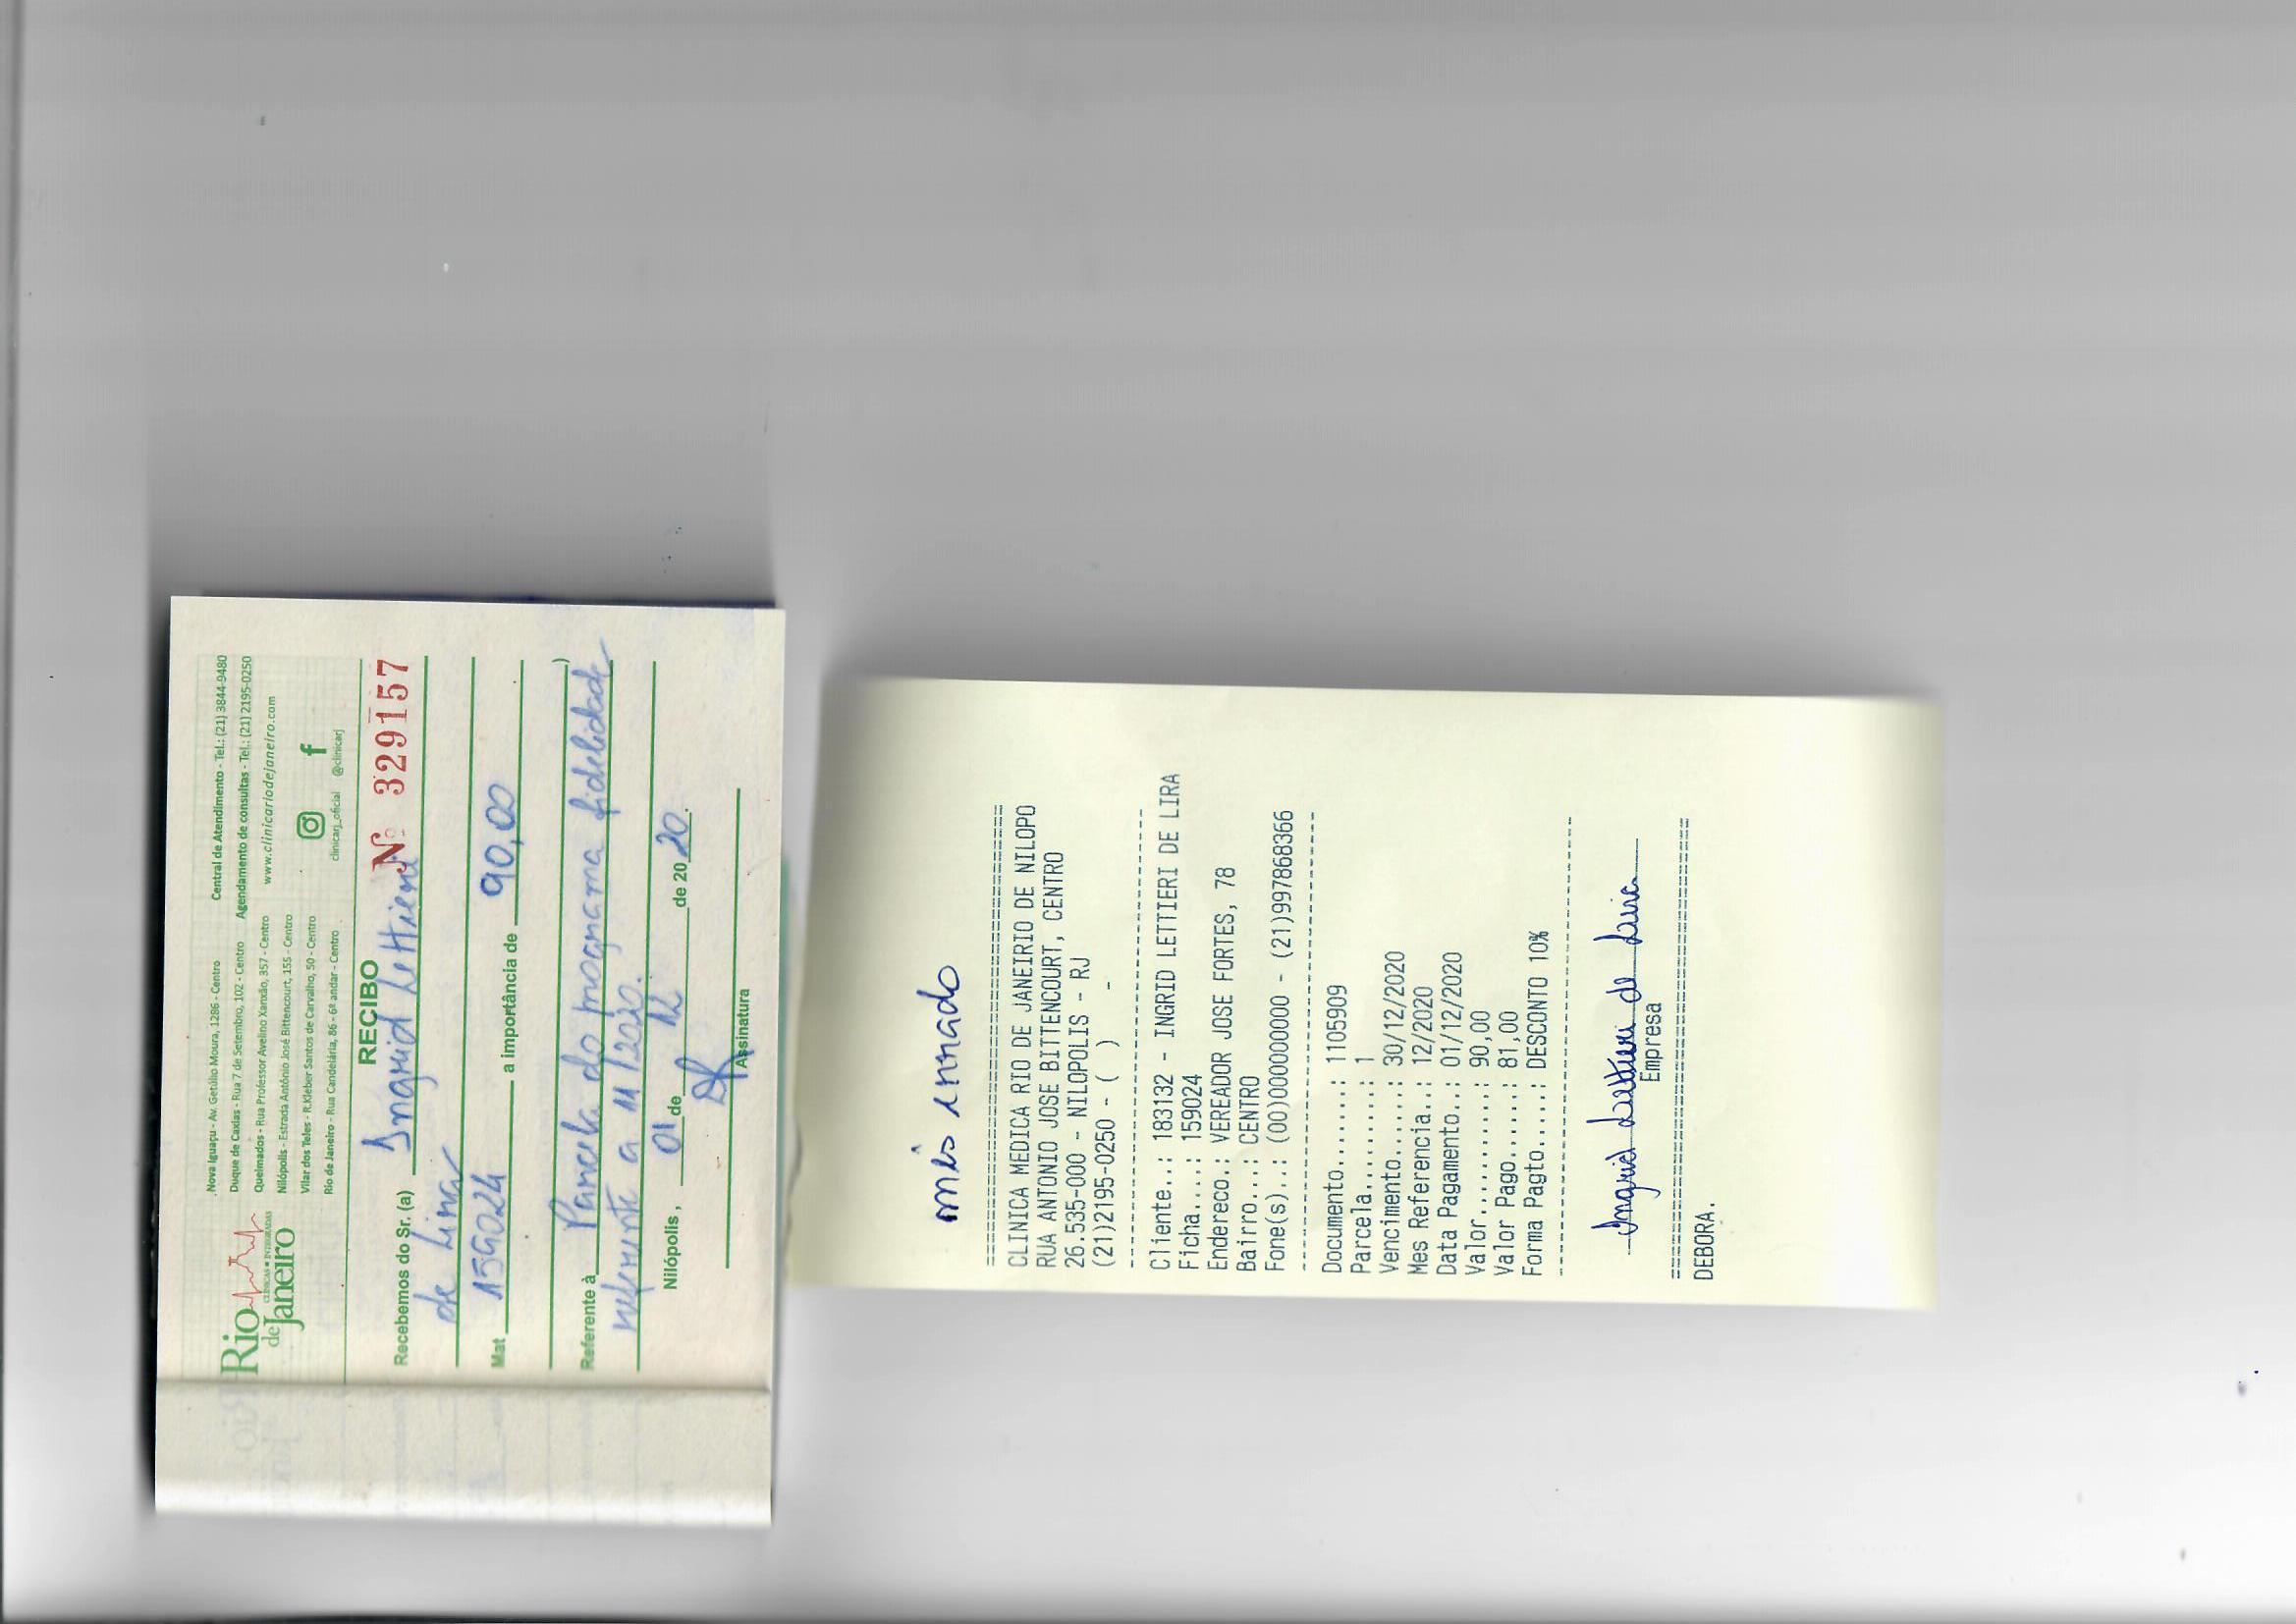 Rio
CLÍNICAS INTEGRADAS
de Janeiro
Nova Iguaçu - Av. Getúlio Moura, 1286 - Centro
Duque de Caxias - Rua 7 de Setembro, 102 - Centro
Queimados - Rua Professor Avelino Xanxão, 357 - Centro
Nilópolis - Estrada Antônio José Bittencourt, 155 - Centro
Vilar dos Teles - R.Kleber Santos de Carvalho, 50 - Centro
Rio de Janeiro - Rua Candelária, 86 - 6º andar - Centro
Central de Atendimento - Tel.: (21) 3844-9480
Agendamento de consultas - Tel.: (21) 2195-0250
www.clinicariodejaneiro.com
clinicarj_oficial @clinicarj
RECIBO
Nº 329157
Recebemos do Sr. (a) Ingrid Lettieri
de Lira
Mat 159024 a importância de 90,00
Referente à Parcela do programa fidelidade
referente a 11/2020.
Nilópolis, 01 de 12 de 2020.
Assinatura
mês errado
CLINICA MEDICA RIO DE JANEIRIO DE NILOPO
RUA ANTONIO JOSE BITTENCOURT, CENTRO
26.535-000 - NILOPOLIS - RJ
(21)2195-0250 - ( ) -
Cliente..: 183132 - INGRID LETTIERI DE LIRA
Ficha....: 159024
Endereco.: VEREADOR JOSE FORTES, 78
Bairro...: CENTRO
Fone(s)..: (00)000000000 - (21)997868366
Documento.......: 1105909
Parcela.........: 1
Vencimento......: 30/12/2020
Mes Referencia..: 12/2020
Data Pagamento..: 01/12/2020
Valor...........: 90,00
Valor Pago......: 81,00
Forma Pagto.....: DESCONTO 10%
Ingrid Lettieri de Lira
Empresa
DEBORA.